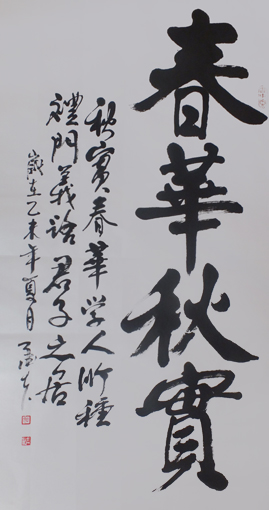 春華秋實
秋實春華学人所種
禮門義路君子之居
歲在乙未年夏月